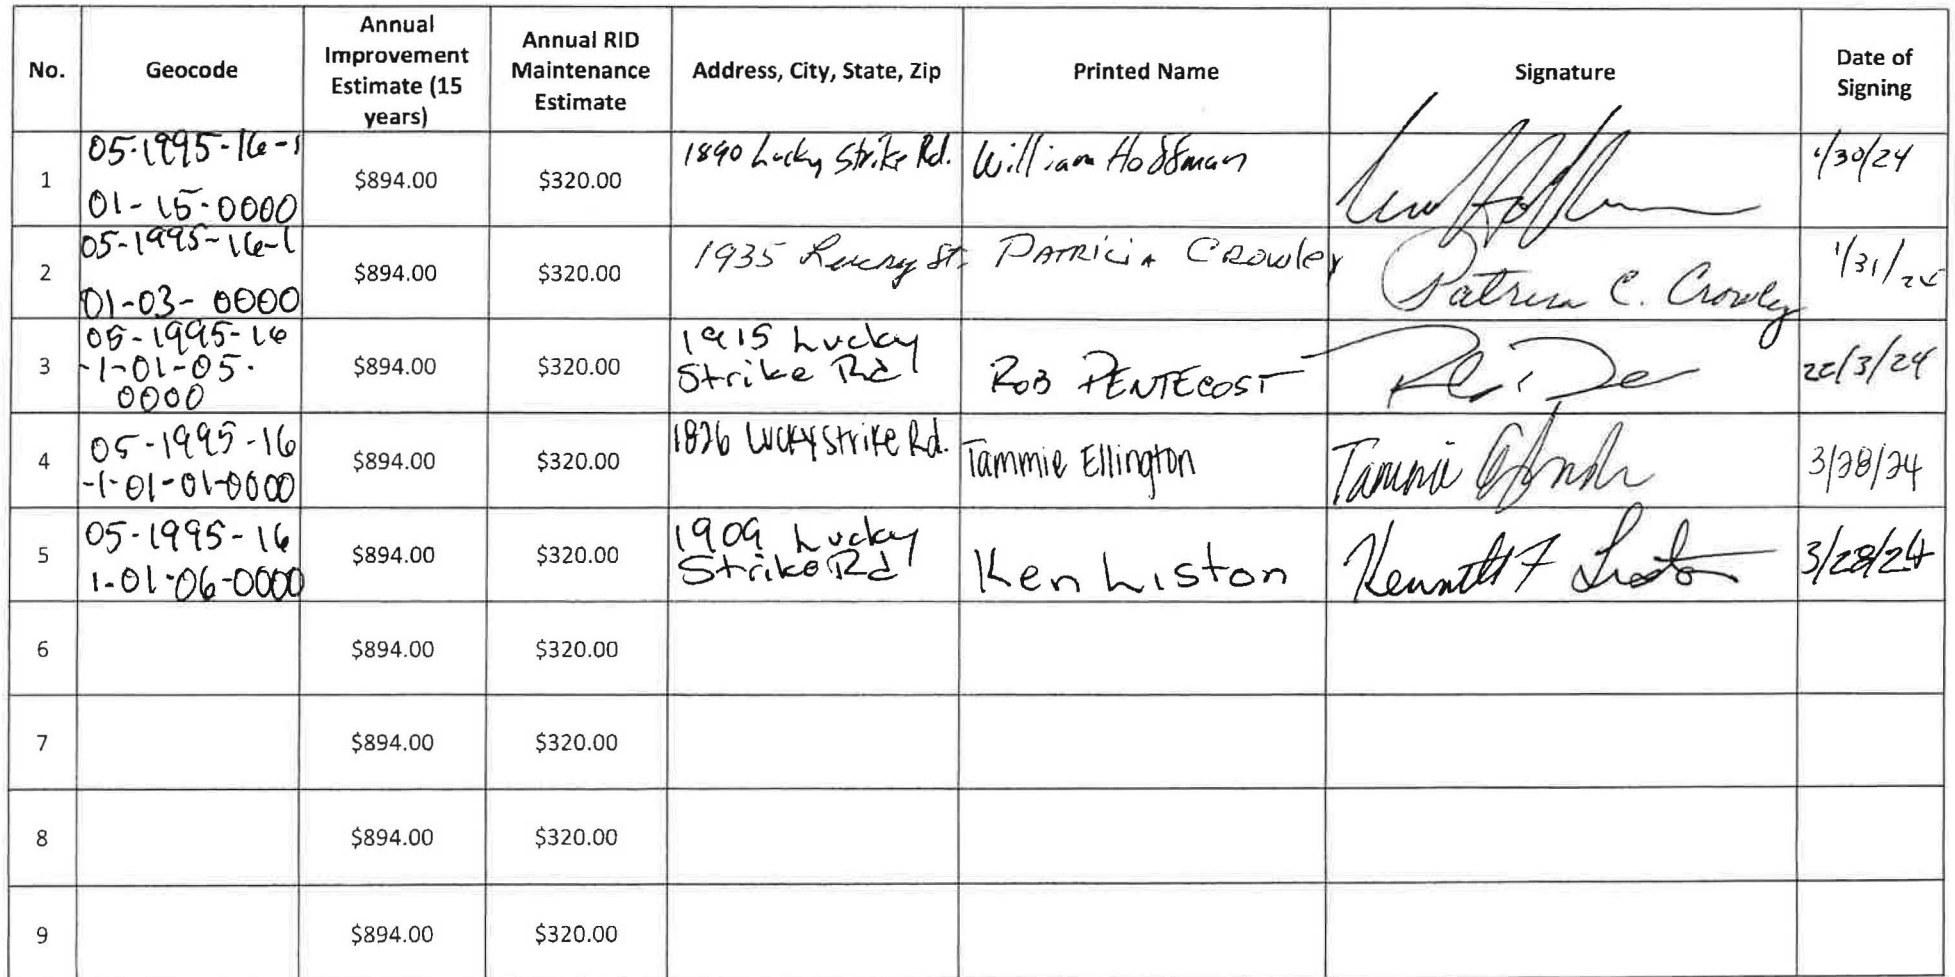 No.
Geocode
Annual
Improvement
Estimate (15
years)
Annual RID
Maintenance
Estimate
Address, City, State, Zip
Printed Name
Signature
Date of
Signing
1
05-1995-16-1
01-15-0000
$894.00
$320.00
1890 Lucky Strike Rd.
William Hoffman
1/30/24
2
05-1995-16-1
01-03-0000
$894.00
$320.00
1935
PATRICIA CROWLEY
Patricia C. Crowley
1/31/24
3
05-1995-16
-1-01-05-
0000
$894.00
$320.00
1915 Lucky
Strike Rd
ROB PENTECOST
/3/24
4
05-1995-16
-1-01-01-0000
$894.00
$320.00
1826 Lucky Strike Rd.
Tammie Ellington
Tammie
3/28/24
5
05-1995-16
1-01-06-0000
$894.00
$320.00
1909 Lucky
Strike Rd
Ken Liston
Kenneth F Liston
3/28/24
6
$894.00
$320.00
7
$894.00
$320.00
8
$894.00
$320.00
9
$894.00
$320.00